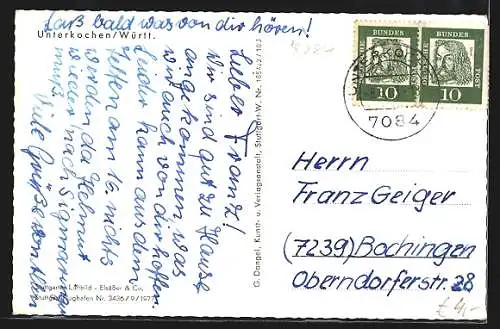 Laß bald was von dir hören!
Unterkochen/Württ.
Lieber Franz!
Wir sind gut zu Hause
angekommen, was
wir auch von dir hoffen.
Leider kann aus dem
Treffen am 16. nichts
werden, da Helmut
wieder nach Sigmaringen
muß.
Viele Grüße von
G. Dangel, Kunst- u. Verlagsanstalt, Stuttgart-W. Nr.
Luftbild - Elsäßer & Co.
Stuttgart-Flughafen Nr. 3436/9/1977
DEUTSCHE
BUNDESPOST
10
DEUTSCHE
BUNDESPOST
10
7084
Herrn
Franz Geiger
(7239) Bochingen
Oberndorferstr. 28
€ 4,-